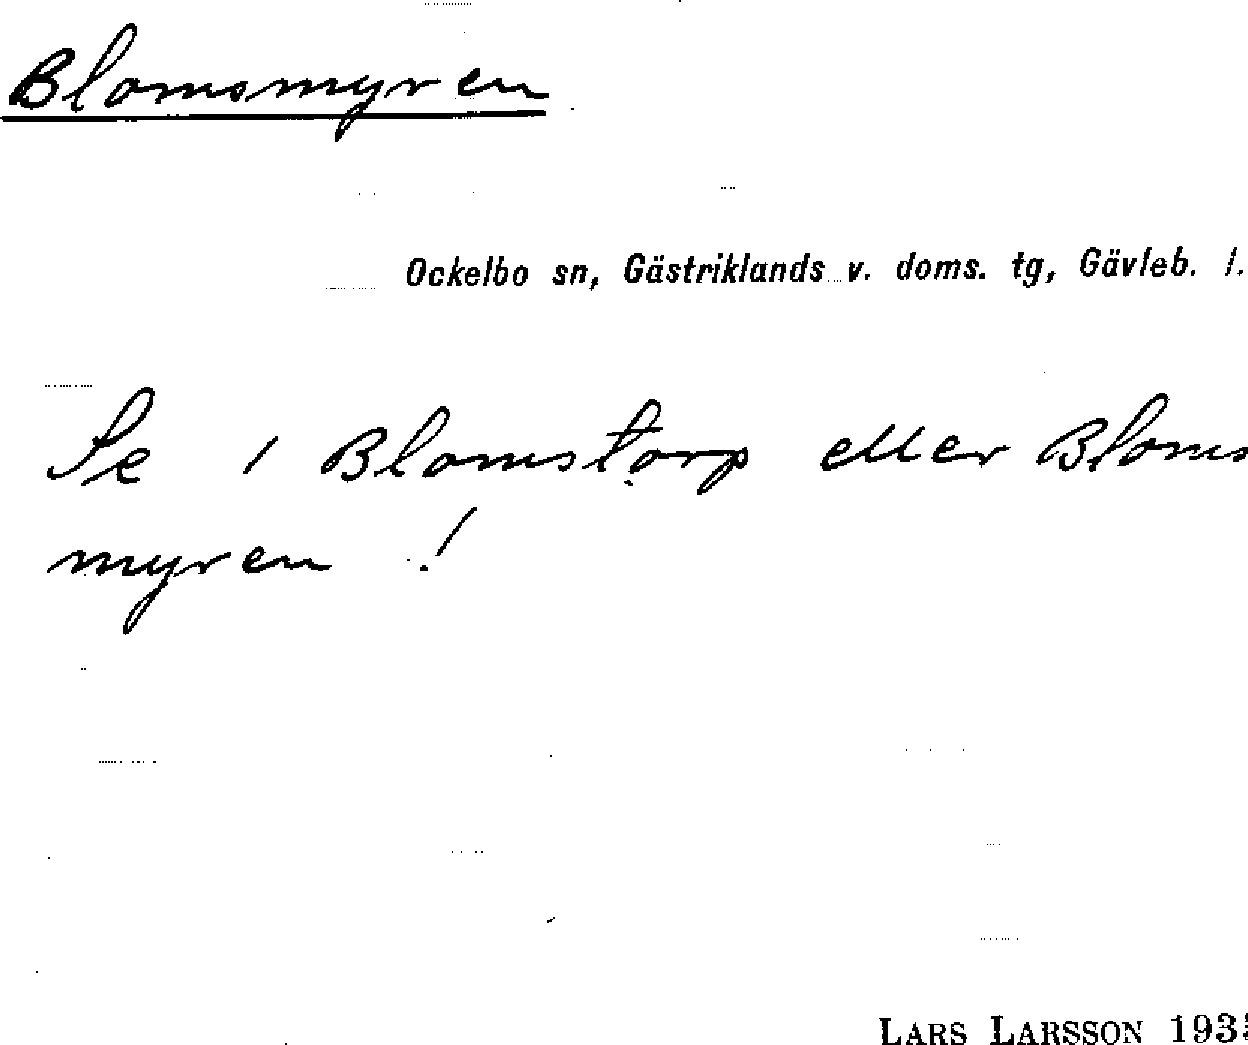 Blomsmyren
Ockelbo sn, Gästriklands v. doms. tg, Gävleb. l.
Se / Blomstorp eller Bloms
myren !
LARS LARSSON